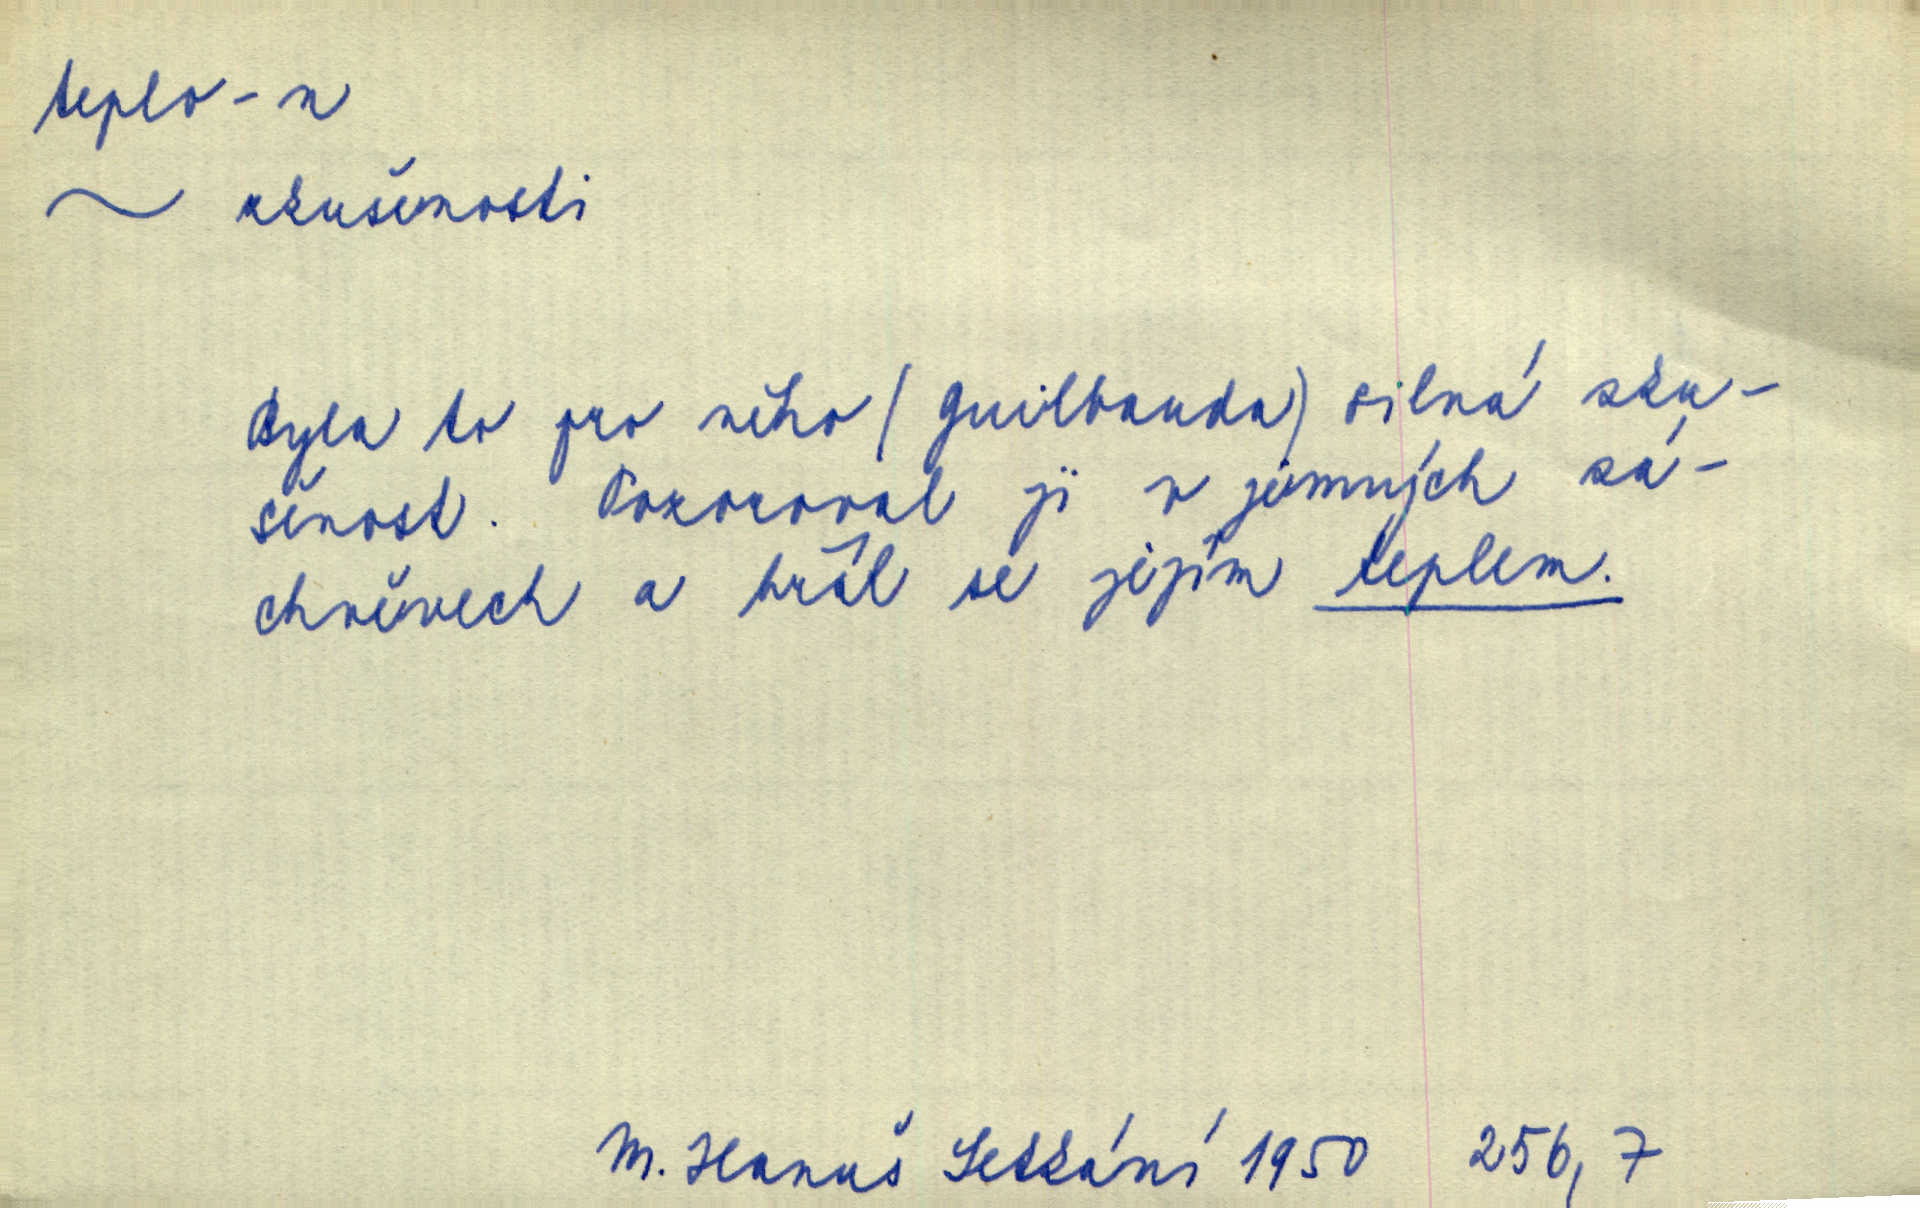 teplo - n
~ zkušenosti
Byla to pro něho (Guilbauda) silná zku-
šenost. Pozoroval ji v jemných zá-
chvěvech a hrál se jejím teplem.
M. Hanuš Setkání 1950 256, 7